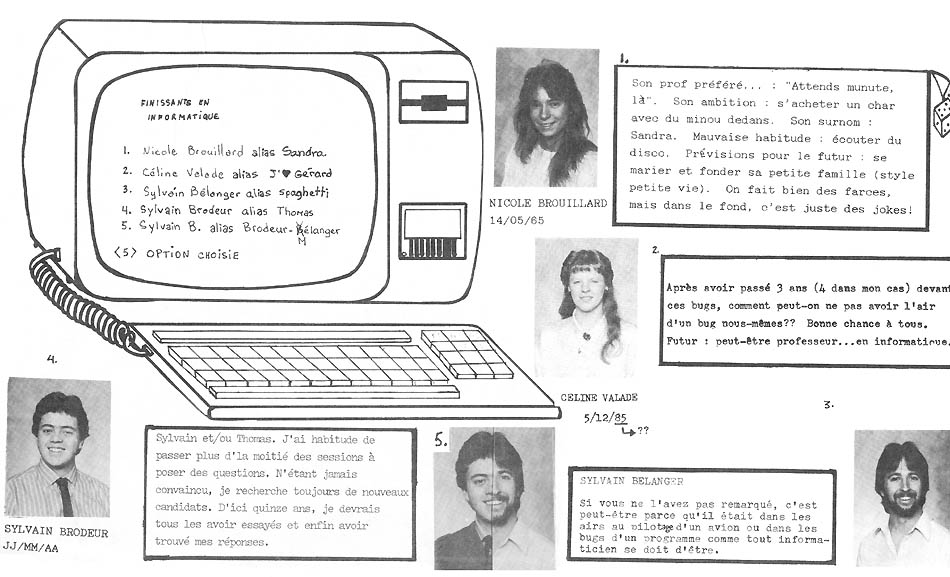 FINISSANTS EN
INFORMATIQUE
1. Nicole Brouillard alias Sandra
2. Céline Valade alias J'♥ Gérard
3. Sylvain Bélanger alias spaghetti
4. Sylvain Brodeur alias Thomas
5. Sylvain B. alias Brodeur-Bélanger
M
<5> OPTION CHOISIE
NICOLE BROUILLARD
14/05/65
1.
Son prof préféré... : "Attends munute,
là". Son ambition : s'acheter un char
avec du minou dedans. Son surnom :
Sandra. Mauvaise habitude : écouter du
disco. Prévisions pour le futur : se
marier et fonder sa petite famille (style
petite vie). On fait bien des farces,
mais dans le fond, c'est juste des jokes!
CELINE VALADE
5/12/85
??
2.
Après avoir passé 3 ans (4 dans mon cas) devant
ces bugs, comment peut-on ne pas avoir l'air
d'un bug nous-mêmes?? Bonne chance à tous.
Futur : peut-être professeur...en informatique.
3.
4.
SYLVAIN BRODEUR
JJ/MM/AA
Sylvain et/ou Thomas. J'ai habitude de
passer plus d'la moitié des sessions à
poser des questions. N'étant jamais
convaincu, je recherche toujours de nouveaux
candidats. D'ici quinze ans, je devrais
tous les avoir essayés et enfin avoir
trouvé mes réponses.
5.
SYLVAIN BELANGER
Si vous ne l'avez pas remarqué, c'est
peut-être parce qu'il était dans les
airs au pilotage d'un avion ou dans les
bugs d'un programme comme tout informa-
ticien se doit d'être.